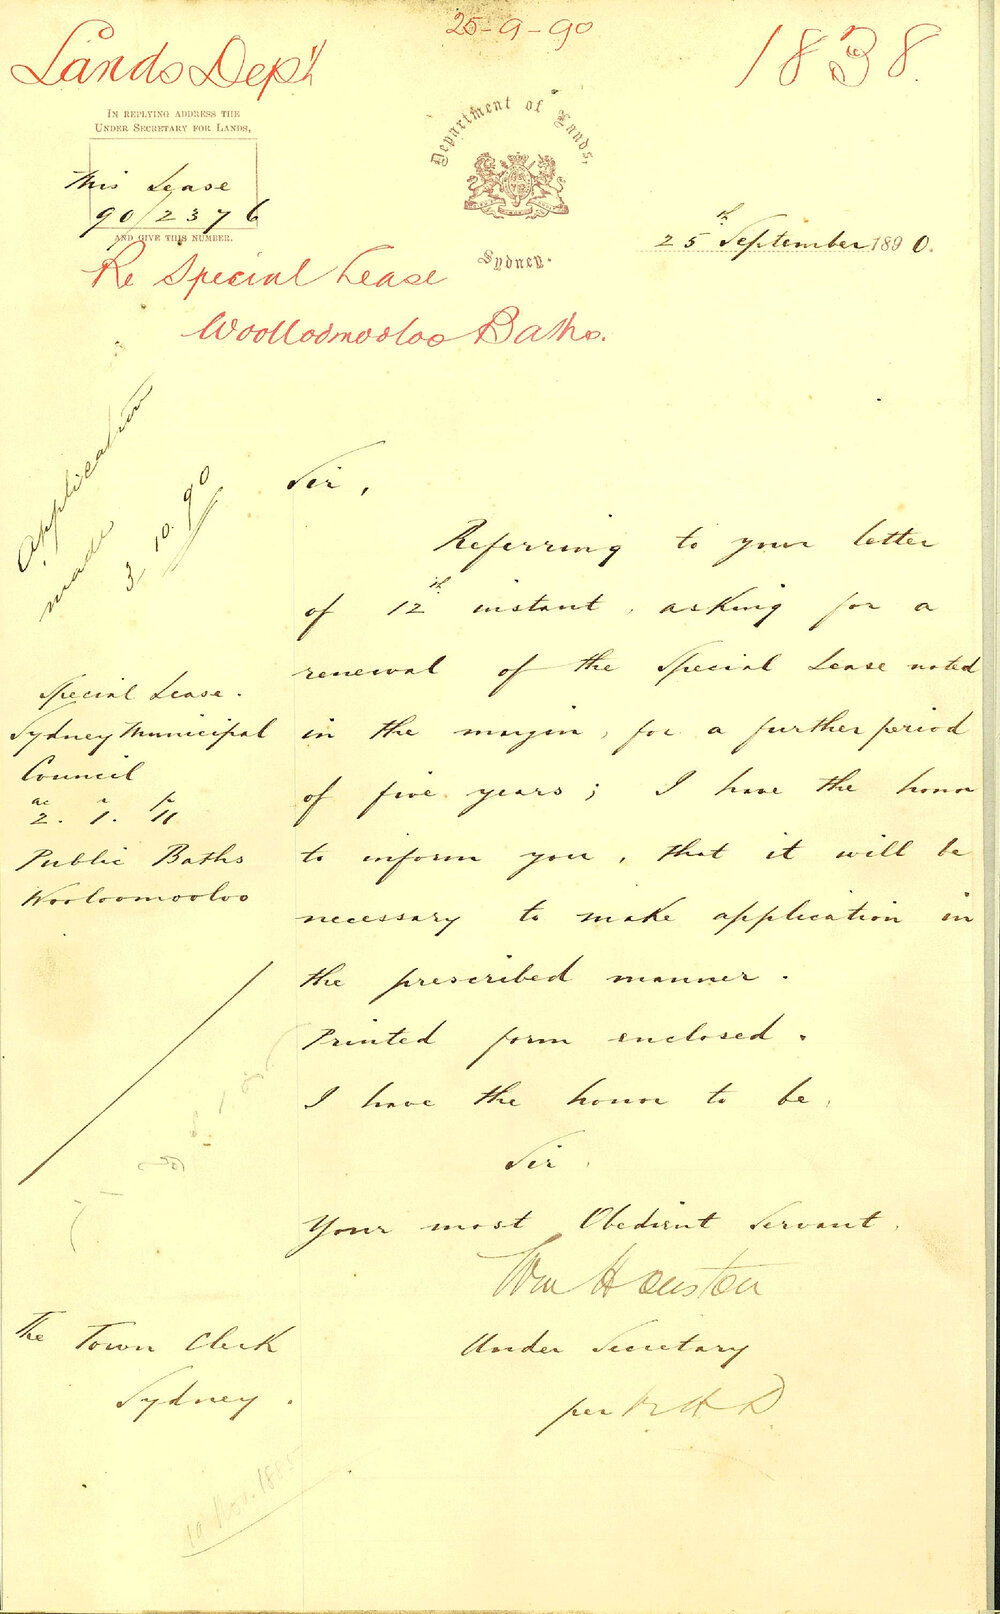 25-9-90
Lands Dept
1838.
IN REPLYING ADDRESS THE
UNDER SECRETARY FOR LANDS,
This Lease
90/2376
AND GIVE THIS NUMBER.
Department of Lands,
Sydney.
25th September 1890.
Re Special Lease
Woolloomooloo Baths.
Application
made
3.10.90
Sir,
Referring to your letter
of 12th instant, asking for a
renewal of the Special Lease noted
in the margin, for a further period
of five years; I have the honor
to inform you, that it will be
necessary to make application in
the prescribed manner.
Printed form enclosed.
I have the honor to be,
Sir
Your most Obedient Servant,
Wm Houston
Under Secretary
per
Special Lease.
Sydney Municipal
Council
ac r p
2. 1. 11
Public Baths
Wooloomooloo
The Town Clerk
Sydney.
19 Nov. 1885